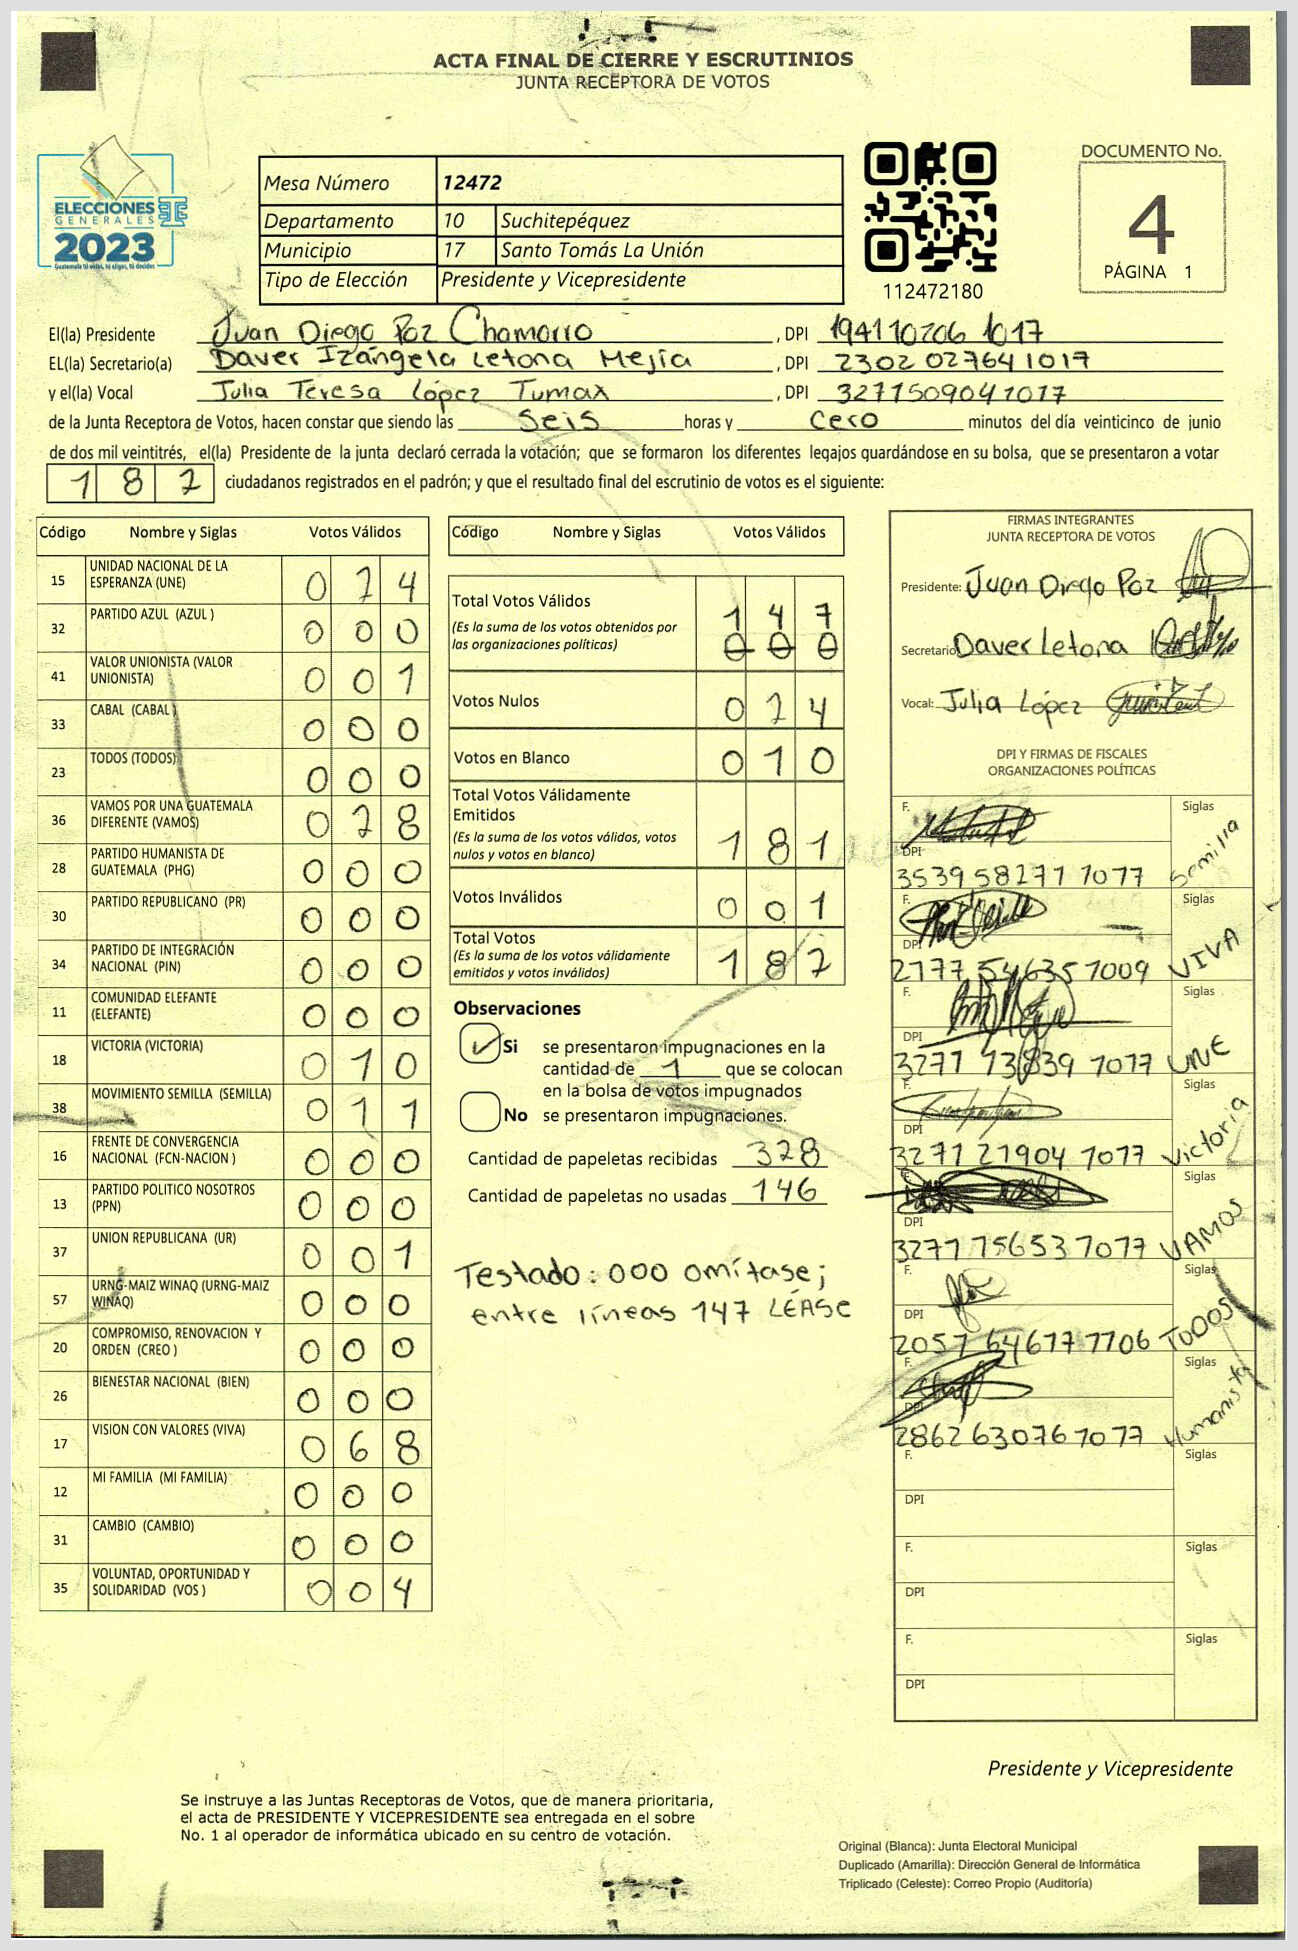 ACTA FINAL DE CIERRE Y ESCRUTINIOS
JUNTA RECEPTORA DE VOTOS
ELECCIONES
GENERALES
2023
Guatemala tú votas, tú eliges, tú decides
Mesa Número 12472
Departamento 10 Suchitepéquez
Municipio 17 Santo Tomás La Unión
Tipo de Elección Presidente y Vicepresidente
112472180
DOCUMENTO No.
4
PÁGINA 1
El(la) Presidente Juan Diego Paz Chamorro, DPI 194110206 1017
EL(la) Secretario(a) Daver Izángela Letona Mejía, DPI 2302 02764 1017
y el(la) Vocal Julia Teresa López Tumax, DPI 3271509041017
de la Junta Receptora de Votos, hacen constar que siendo las Seis horas y Cero minutos del día veinticinco de junio
de dos mil veintitrés, el(la) Presidente de la junta declaró cerrada la votación; que se formaron los diferentes legajos guardándose en su bolsa, que se presentaron a votar
182 ciudadanos registrados en el padrón; y que el resultado final del escrutinio de votos es el siguiente:
Código Nombre y Siglas Votos Válidos
15 UNIDAD NACIONAL DE LA ESPERANZA (UNE) 024
32 PARTIDO AZUL (AZUL ) 000
41 VALOR UNIONISTA (VALOR UNIONISTA) 001
33 CABAL (CABAL ) 000
23 TODOS (TODOS) 000
36 VAMOS POR UNA GUATEMALA DIFERENTE (VAMOS) 028
28 PARTIDO HUMANISTA DE GUATEMALA (PHG) 000
30 PARTIDO REPUBLICANO (PR) 000
34 PARTIDO DE INTEGRACIÓN NACIONAL (PIN) 000
11 COMUNIDAD ELEFANTE (ELEFANTE) 000
18 VICTORIA (VICTORIA) 010
38 MOVIMIENTO SEMILLA (SEMILLA) 011
16 FRENTE DE CONVERGENCIA NACIONAL (FCN-NACION ) 000
13 PARTIDO POLITICO NOSOTROS (PPN) 000
37 UNION REPUBLICANA (UR) 001
57 URNG-MAIZ WINAQ (URNG-MAIZ WINAQ) 000
20 COMPROMISO, RENOVACION Y ORDEN (CREO ) 000
26 BIENESTAR NACIONAL (BIEN) 000
17 VISION CON VALORES (VIVA) 068
12 MI FAMILIA (MI FAMILIA) 000
31 CAMBIO (CAMBIO) 000
35 VOLUNTAD, OPORTUNIDAD Y SOLIDARIDAD (VOS ) 004
Código Nombre y Siglas Votos Válidos
Total Votos Válidos 147
(Es la suma de los votos obtenidos por las organizaciones políticas) 000
Votos Nulos 024
Votos en Blanco 010
Total Votos Válidamente Emitidos
(Es la suma de los votos válidos, votos nulos y votos en blanco) 181
Votos Inválidos 001
Total Votos
(Es la suma de los votos válidamente emitidos y votos inválidos) 182
Observaciones
Si se presentaron impugnaciones en la
cantidad de 1 que se colocan
en la bolsa de votos impugnados
No se presentaron impugnaciones.
Cantidad de papeletas recibidas 328
Cantidad de papeletas no usadas 146
Testado: 000 omítase;
entre líneas 147 LÉASE
FIRMAS INTEGRANTES
JUNTA RECEPTORA DE VOTOS
Presidente: Juan Diego Paz
Secretario Daver Letona
Vocal: Julia López
DPI Y FIRMAS DE FISCALES
ORGANIZACIONES POLÍTICAS
F. Siglas
DPI
3539 58271 1017 Semilla
F. Siglas
DPI
2177 54635 1009 VIVA
F. Siglas
DPI
3271 13839 1017 UNE
F. Siglas
DPI
3271 21904 1017 Victoria
F. Siglas
DPI
3271 15653 1017 VAMOS
F. Siglas
DPI
2057 64617 7106 TODOS
F. Siglas
DPI
2862 63076 1017 Humanista
F. Siglas
DPI
F. Siglas
DPI
F. Siglas
DPI
Presidente y Vicepresidente
Se instruye a las Juntas Receptoras de Votos, que de manera prioritaria,
el acta de PRESIDENTE Y VICEPRESIDENTE sea entregada en el sobre
No. 1 al operador de informática ubicado en su centro de votación.
Original (Blanca): Junta Electoral Municipal
Duplicado (Amarilla): Dirección General de Informática
Triplicado (Celeste): Correo Propio (Auditoría)